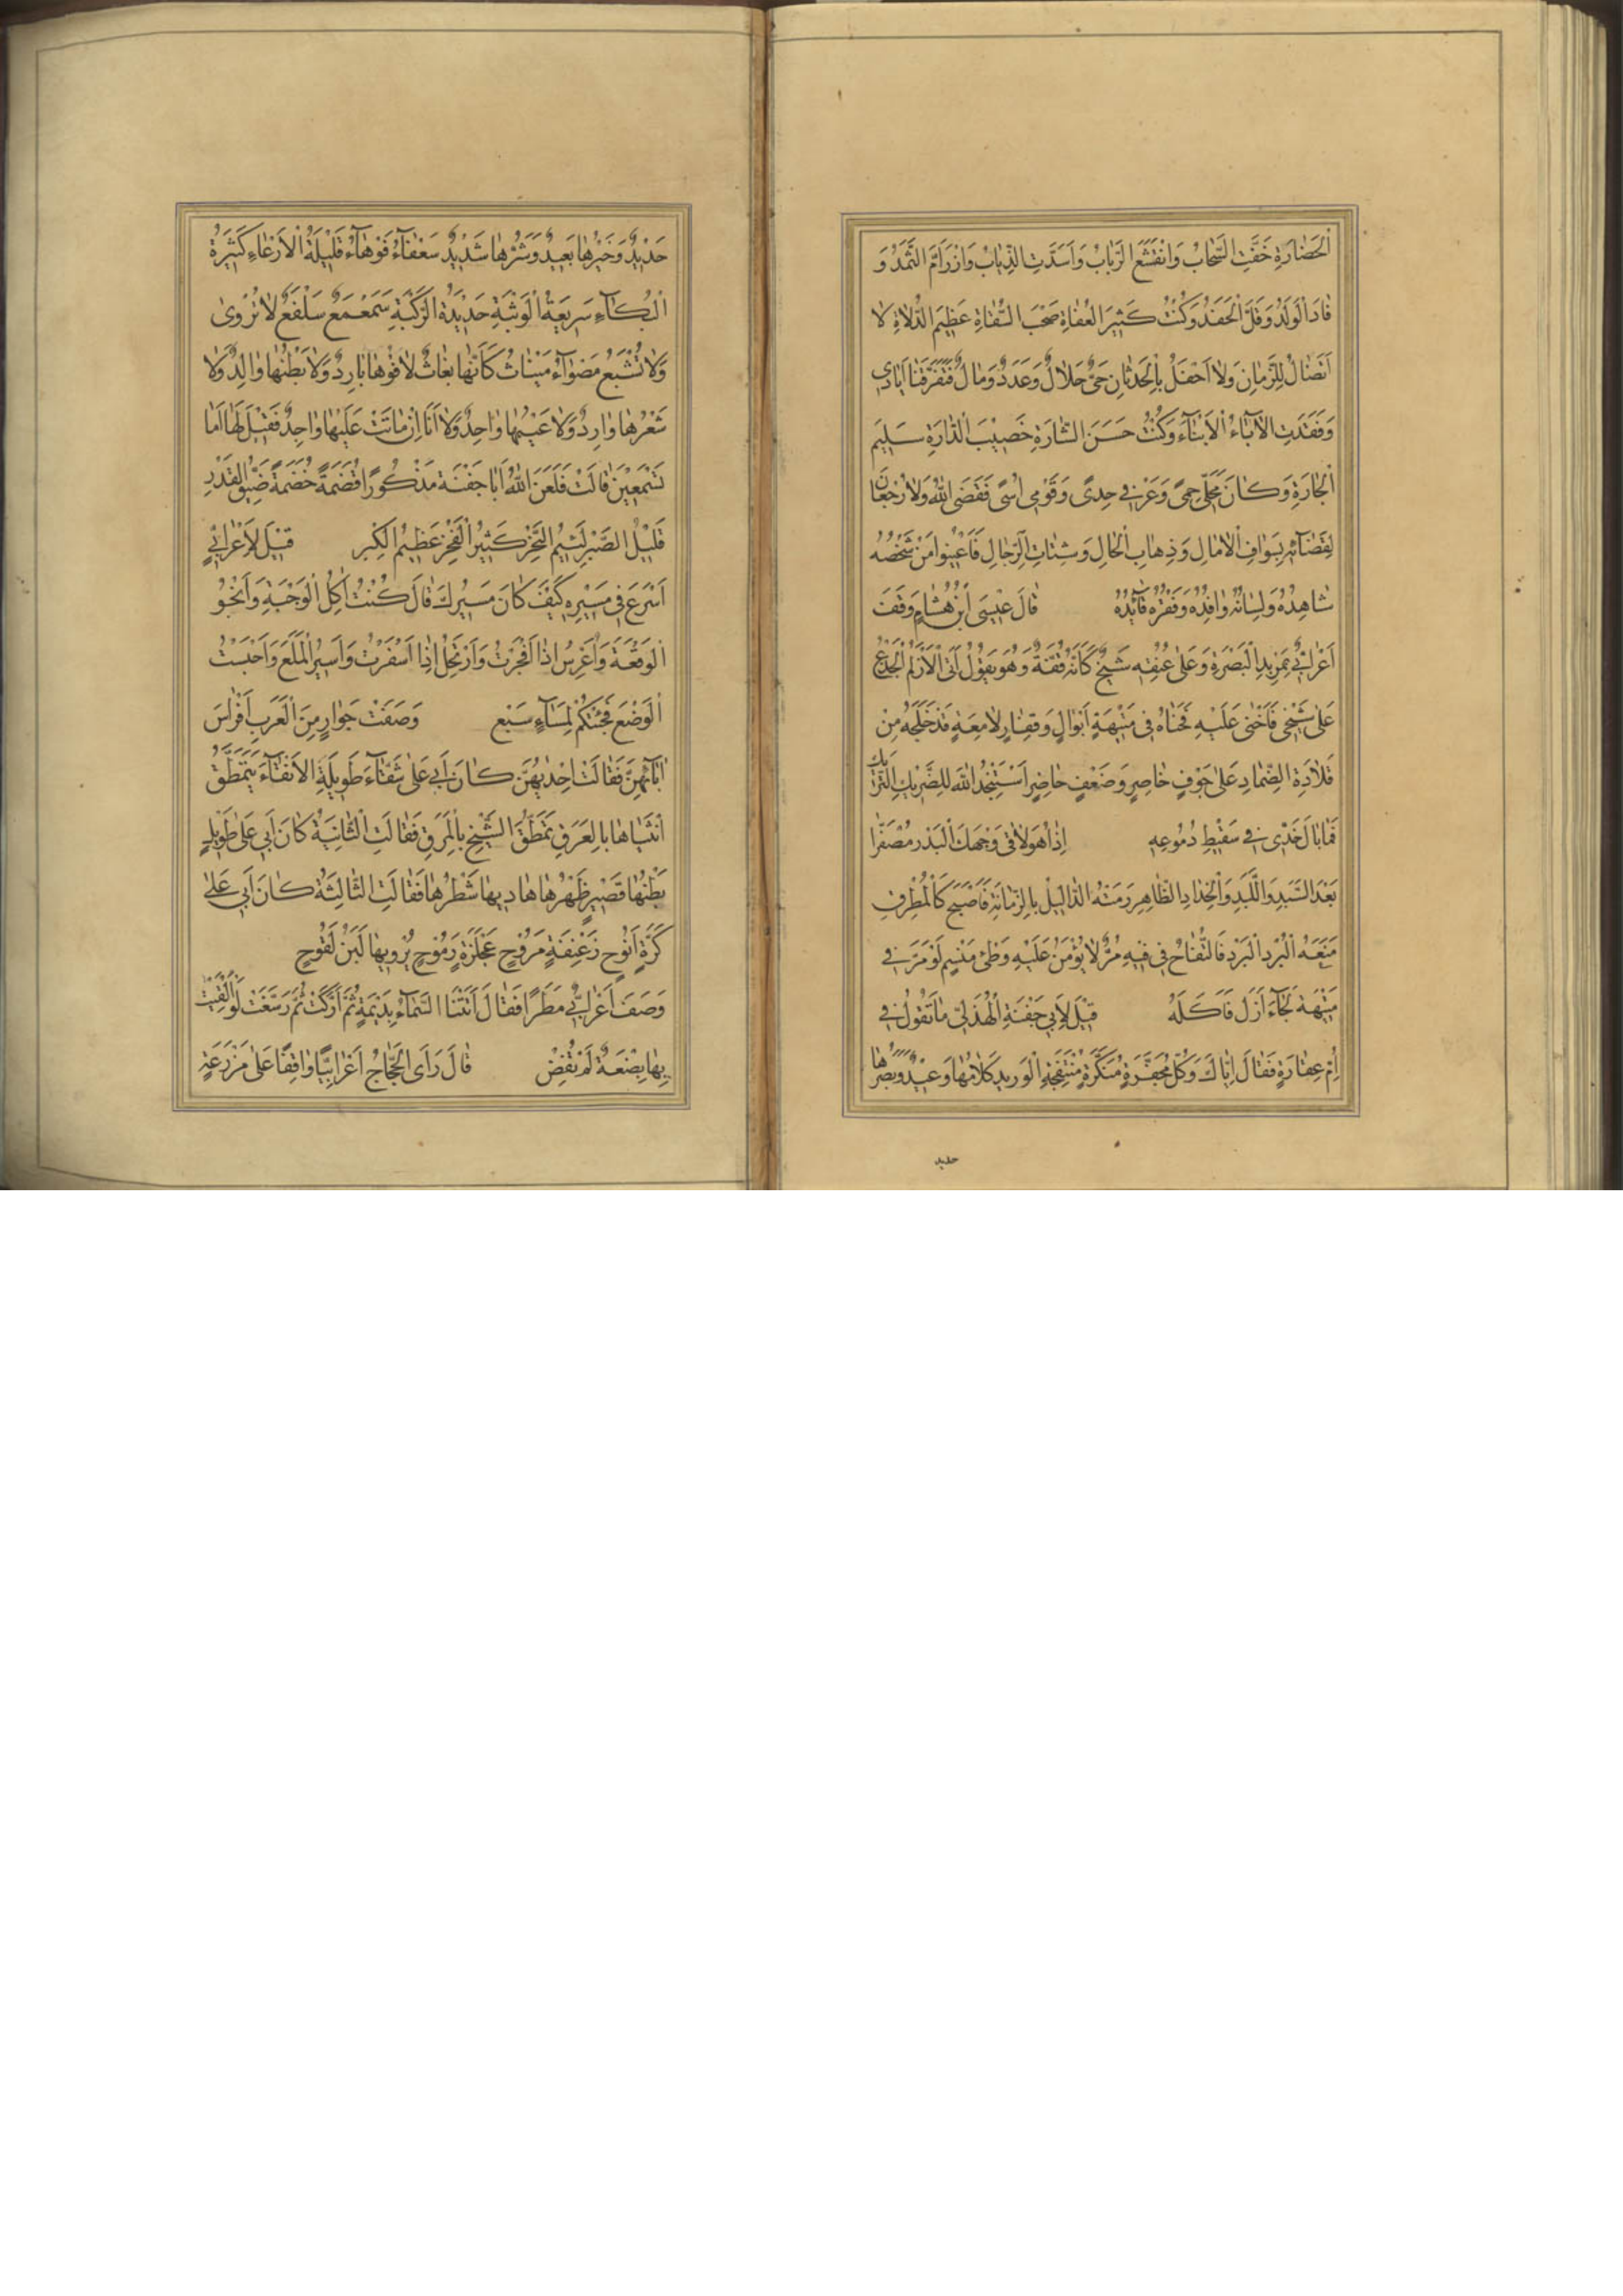 الْحَضَارَةِ خَفَّتِ السَّحَابُ وَانْقَشَعَ الرَّبَابُ وَاَسَدَّتِ الذِّيَابُ وَازْرَأَمَّ الثَّمَدُ وَ
قَادَ الْوَلَدُ وَقَلَّ الْحَفَدُ وَكُنْتُ كَثِيرَ الْعُفَاةِ صَخْبَ السُّقَاةِ عَظِيمَ الدُّلَاةِ لَا
اَتَضَالُ لِلزَّمَانِ وَلَا اَحْفَلُ بِالْحَدَثَانِ حَيٌّ حَلَالٌ وَعَدَدٌ وَمَالٌ فَتَفَرَّقْنَا اَيَادِي
وَفَقَدَتِ الْاٰبَآءُ الْاَبْنَآءَ وَكُنْتُ حَسَنَ الشَّارَةِ خَصِيبَ الدَّارَةِ سَلِيمَ
الْجَارَةِ وَكَانَ مَحَلِّي حِمًى وَعَزْفِي حِدًى وَقَوْمِي اُسًى فَقَضَى اللهُ وَلَا رُجْعَانَ
لِقَضَآئِهِ بِسَوَافِ الْاَمَالِ وَذِهَابِ الْحَالِ وَشِتَاتِ الرِّجَالِ فَاَعِينُوا مَنْ شَخْصُهُ
شَاهِدُهُ وَلِسَانُهُ وَافِدُهُ وَفَقْرُهُ قَآئِدُهُ قَالَ عِيسَى ابْنُ هُشَامٍ وَقَفَ
اَعْرَابِيٌّ بِمَرْبِدِ الْبَصْرَةِ وَعَلَى عُنُقِهِ شَيْخٌ كَاَنَّهُ قُفَّةٌ وَهُوَ يَقُولُ اَتَى الْاَزْلَمُ الْجَذَعُ
عَلَى شَيْخِي فَاَخْنَى عَلَيْهِ فَحَنَاهُ فِي مَتْيَهَةٍ اَبْوَالٍ وَقِفَارٍ لَامِعَةٍ قَدْ خَلَّجَهُ مِنْ
قِلَادَةِ الضِّمَادِ عَلَى جَوْفٍ خَاصِرٍ وَضَعْفٍ حَاضِرٍ اَسْتَنْجِدُ اللهَ لِلضَّرِيكِ النَّزِيكِ
فَمَا بَالُ خَدِّي فِي سَقِيطِ دُمُوعِهِ اِذَا هُوَ لَاقَى وَجْهَكَ الْبَدْرَ مُصْفَرًّا
بَعْدَ السَّبَدِ وَاللَّبَدِ وَالْخِدَادِ الظَّاهِرِ رَمَتْهُ الذَّالِيلُ بِالزَّمَانَةِ فَاَصْبَحَ كَالْمُطْرِفِ
مَنَعَهُ الْبُرْدُ الْبَرْدَ فَالتُّفَّاحُ فِي فِيهِ مُرٌّ لَا يُؤْمَنُ عَلَيْهِ وَطْئُ مَنْسِمٍ لَوْ مَرَّ فِي
مَتْيَهَةٍ لَجَآءَ اَزَلُّ فَاَكَلَهُ قِيلَ لِاَبِي جَفْنَةَ الْهُذَلِيِّ مَا تَقُولُ فِي
اُمِّ عِقَارَةٍ فَقَالَ اِيَّاكَ وَكُلَّ مُجَفَّرَةٍ مُنَكَّرَةٍ مُنْتَفِجَةِ الْوَرِيدِ كَلَامُهَا وَعِيدٌ وَبَصَرُهَا
حديد
حَدِيدٌ وَخَيْرُهَا بَعِيدٌ وَشَرُّهَا شَدِيدٌ سَعْفَآءُ فَوْهَآءُ قَلِيلَةُ الْاَرْعَآءِ كَثِيرَةُ
الْبُكَآءِ سَرِيعَةُ الْوَثْبَةِ حَدِيدَةُ الرَّكْبَةِ سَمَعْمَعٌ سَلْفَعٌ لَا تُرْوٰى
وَلَا تُشْبَعُ مَضْوَآءُ مِينَاثٌ كَاَنَّهَا بُغَاثٌ لَا فُوْهَا بَارِدٌ وَلَا بَطْنُهَا وَالِدٌ وَلَا
شَعْرُهَا وَارِدٌ وَلَا عَيْبُهَا وَاحِدٌ وَلَا اَنَا اِنْ مَاتَتْ عَلَيْهَا وَاجِدٌ فَقِيلَ لَهَا اَمَا
تَسْمَعِيْنَ قَالَتْ فَلَعَنَ اللهُ اَبَا جَفْنَةَ مَذْكُورًا قُضَمَةً خُضَمَةً ضَيِّقَ الْقَدْرِ
قَلِيْلُ الصَّبْرِ لَئِيْمُ النَّجْرِ كَثِيْرُ الْفَخْرِ عَظِيْمُ الْكِبْرِ قِيْلَ لِاَعْرَابِيٍّ
اَسْرَعَ فِي مَسِيْرِهِ كَيْفَ كَانَ مَسِيْرُكَ قَالَ كُنْتُ اٰكُلُ الْوَجْبَةَ وَاَنْجُوُ
الْوَقْعَةَ وَاُعَرِّسُ اِذَا اَفْجَرْتُ وَاَرْتَحِلُ اِذَا اَسْفَرْتُ وَاَسِيْرُ الْمَلْعَ وَاَجْتَنِبُ
الْوَضْعَ فَجِئْتُكُمْ لِمَسَآءِ سَبْعٍ وَصَفَتْ جَوَارٍ مِنَ الْعَرَبِ اَفْرَاسَ
اٰبَآئِهِنَّ فَقَالَتْ اِحْدٰيهُنَّ كَانَ اَبِي عَلَى شَقَّآءَ طَوِيلَةِ الْاَنْقَآءِ يَتَمَطَّقُ
اُنْثَيَاهَا بِالْعَرَقِ تَمَطُّقَ الشَّيْخِ بِالْمَرَقِ فَقَالَتِ الثَّانِيَةُ كَانَ اَبِي عَلَى طَوِيلٍ
بَطْنُهَا قَصِيْرٍ ظَهْرُهَا هَادِيهَا شَطْرُهَا فَقَالَتِ الثَّالِثَةُ كَانَ اَبِي عَلَى
كَزَّةٍ اَنُوْحٍ زَعْنِفَةٍ مَرُوْحٍ عَجْلَزَةٍ رَمُوْحٍ يُرْوِيهَا لَبَنُ لَقُوْحٍ
وَصَفَ اَعْرَابِيٌّ مَطَرًا فَقَالَ اَتَتْنَا السَّمَآءُ بِدَيْمَةٍ ثُمَّ اَرَكَّتْ ثُمَّ رَسَّغَتْ لَوْ اُلْقِيَتْ
بِهَا بِضْعَةٌ لَمْ تُقِضَّ قَالَ رَاَى الْحَجَّاجُ اَعْرَابِيًّا وَاقِفًا عَلَى مَزْرَعَةٍ